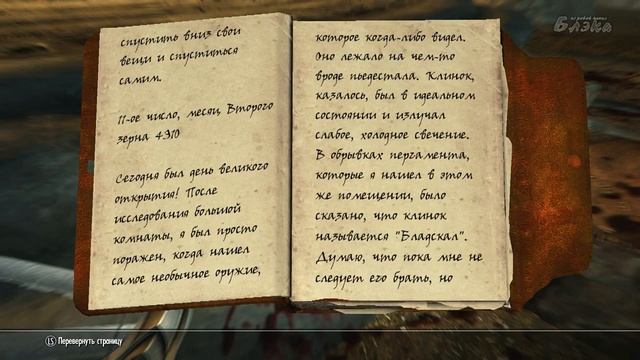 спустить вниз свои
вещи и спуститься
самим.
11-ое число, месяц Второго
зерна 4Э10
Сегодня был день великого
открытия! После
исследования большой
комнаты, я был просто
поражен, когда нашел
самое необычное оружие,
которое когда-либо видел.
Оно лежало на чем-то
вроде пьедестала. Клинок,
казалось, был в идеальном
состоянии и излучал
слабое, холодное свечение.
В обрывках пергамента,
которые я нашел в этом
же помещении, было
сказано, что клинок
называется "Бладскал".
Думаю, что пока мне не
следует его брать, но
игровой канал
Блэка
LS Перевернуть страницу